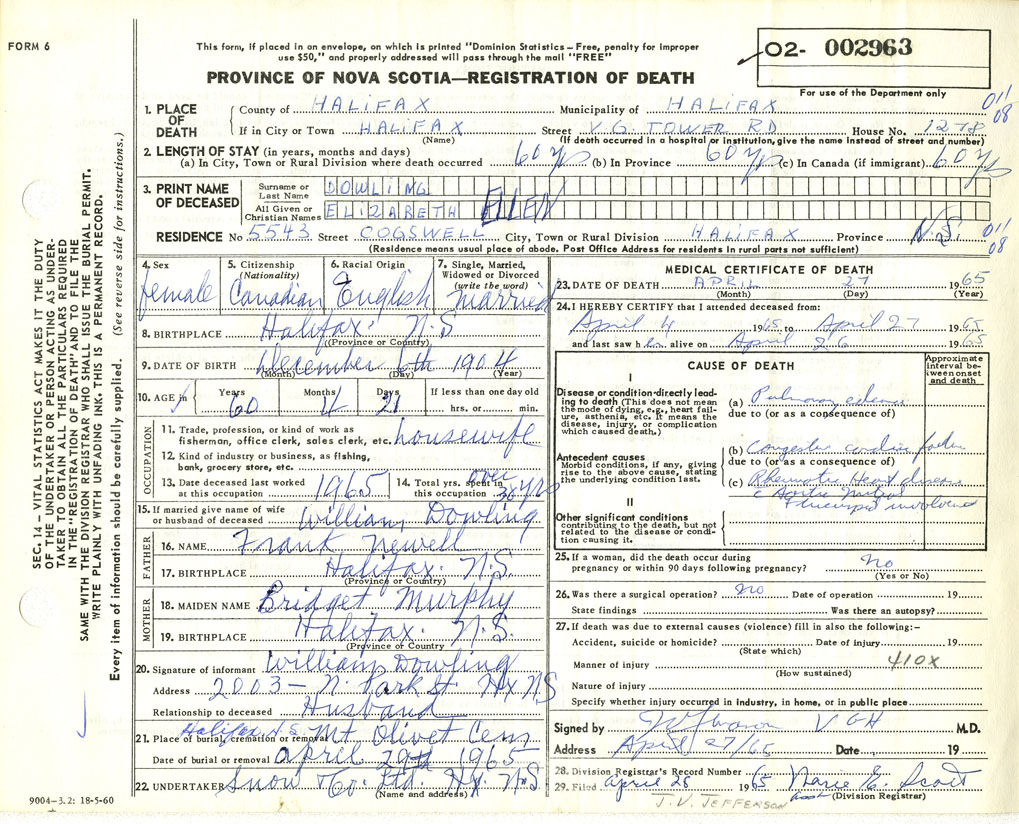 FORM 6
This form, if placed in an envelope, on which is printed "Dominion Statistics – Free, penalty for improper
use $50," and properly addressed will pass through the mail "FREE"
PROVINCE OF NOVA SCOTIA—REGISTRATION OF DEATH
02- 002963
For use of the Department only
1. PLACE OF DEATH
County of HALIFAX Municipality of HALIFAX 011 08
If in City or Town HALIFAX Street V.G. TOWER RD House No. 1278
(Name) (If death occurred in a hospital or institution, give the name instead of street and number)
2. LENGTH OF STAY (in years, months and days)
(a) In City, Town or Rural Division where death occurred 60 yrs (b) In Province 60 yrs (c) In Canada (if immigrant) 60 y
3. PRINT NAME OF DECEASED
Surname or Last Name DOWLING
All Given or Christian Names ELIZABETH ELLEN
RESIDENCE No 5543 Street COGSWELL City, Town or Rural Division HALIFAX Province N.S. 011 08
(Residence means usual place of abode. Post Office Address for residents in rural parts not sufficient)
4. Sex female
5. Citizenship (Nationality) Canadian
6. Racial Origin English
7. Single, Married, Widowed or Divorced (write the word) Married
8. BIRTHPLACE Halifax N.S
(Province or Country)
9. DATE OF BIRTH December 6th 1904
(Month) (Day) (Year)
10. AGE in Years 60 Months 4 Days 21 If less than one day old hrs. or min.
OCCUPATION
11. Trade, profession, or kind of work as
fisherman, office clerk, sales clerk, etc. housewife
12. Kind of industry or business, as fishing,
bank, grocery store, etc.
13. Date deceased last worked at this occupation 1965
14. Total yrs. spent in this occupation over 30 yrs
15. If married give name of wife or husband of deceased William Dowling
FATHER
16. NAME Frank Newell
17. BIRTHPLACE Halifax N.S.
(Province or Country)
MOTHER
18. MAIDEN NAME Bridget Murphy
19. BIRTHPLACE Halifax N.S.
(Province or Country
20. Signature of informant William Dowling
Address 2003 – N. Park St. Hx NS
Relationship to deceased Husband
21. Place of burial, cremation or removal Halifax N.S. Mt Olivet Cem
Date of burial or removal April 29th 1965
22. UNDERTAKER Snow & Co. Ltd. Hx. N.S.
(Name and address)
9004–3.2: 18-5-60
MEDICAL CERTIFICATE OF DEATH
23. DATE OF DEATH APRIL 27 1965
(Month) (Day) (Year)
24. I HEREBY CERTIFY that I attended deceased from:
April 4 1965 to April 27 1965
and last saw her alive on April 26 1965
CAUSE OF DEATH
Approximate interval between onset and death
I
Disease or condition directly leading to death (This does not mean the mode of dying, e.g., heart failure, asthenia, etc. It means the disease, injury, or complication which caused death.)
(a) Pulmonary edema
due to (or as a consequence of)
Antecedent causes
Morbid conditions, if any, giving rise to the above cause, stating the underlying condition last.
(b) Congestive cardiac failure
due to (or as a consequence of)
(c) Rheumatic Heart disease
c Aortic Mitral
& Tricuspid involved
II
Other significant conditions
contributing to the death, but not related to the disease or condition causing it.
25. If a woman, did the death occur during
pregnancy or within 90 days following pregnancy? No
(Yes or No)
26. Was there a surgical operation? no Date of operation 19
State findings Was there an autopsy?
27. If death was due to external causes (violence) fill in also the following:–
Accident, suicide or homicide? Date of injury 19
(State which)
Manner of injury 410X
(How sustained)
Nature of injury
Specify whether injury occurred in industry, in home, or in public place
Signed by VGH M.D.
Address April 27/65 Date 19
28. Division Registrar's Record Number
29. Filed April 28 1965 Marie E. Scott
(Division Registrar)
J.V. JEFFERSON
SEC. 14 – VITAL STATISTICS ACT MAKES IT THE DUTY
OF THE UNDERTAKER OR PERSON ACTING AS UNDER-
TAKER TO OBTAIN ALL THE PARTICULARS REQUIRED
IN THE "REGISTRATION OF DEATH" AND TO FILE THE
SAME WITH THE DIVISION REGISTRAR WHO SHALL ISSUE THE BURIAL PERMIT.
WRITE PLAINLY WITH UNFADING INK. THIS IS A PERMANENT RECORD.
Every item of information should be carefully supplied. (See reverse side for instructions.)